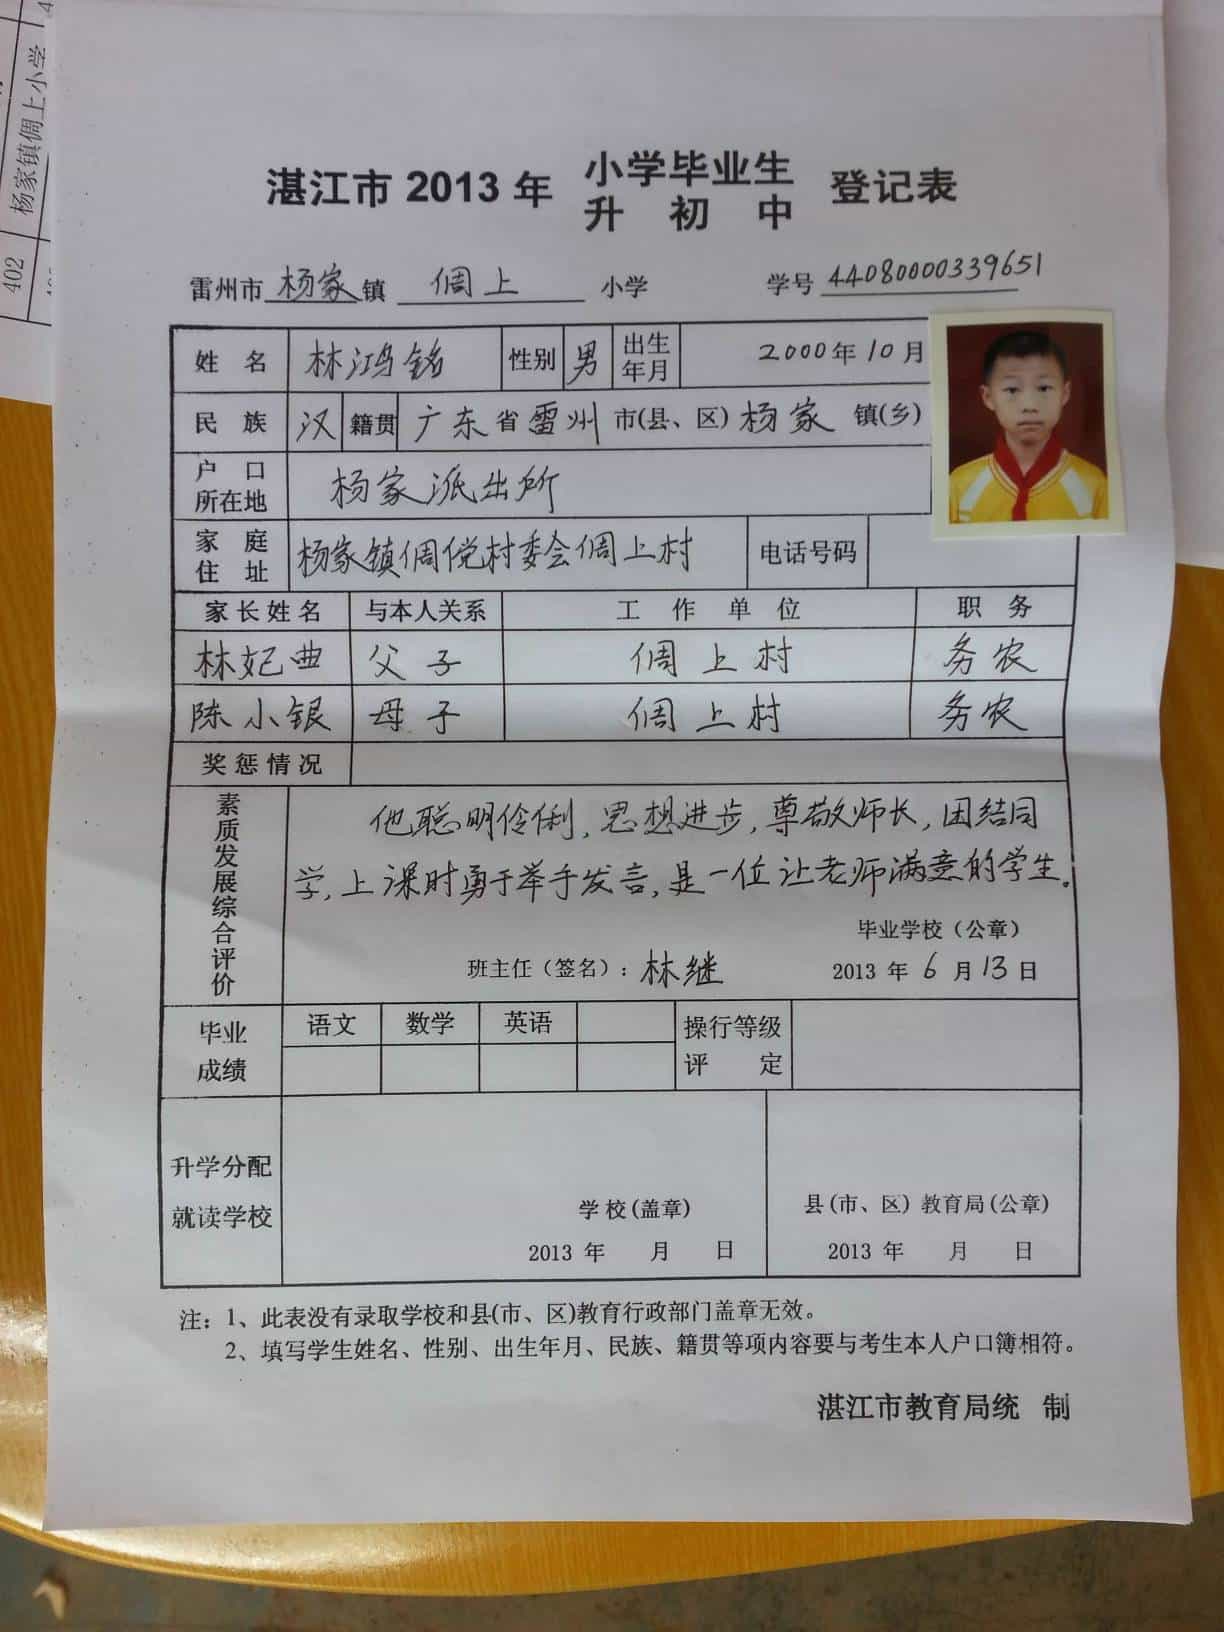 杨家镇倜上小学
402
湛江市 2013 年 小学毕业生 登记表
升 初 中
雷州市 杨家 镇 倜上 小学 学号 44080000339651
姓 名 林鸿铭 性别 男 出生年月 2000 年 10 月
民 族 汉 籍贯 广东 省 雷州 市(县、区) 杨家 镇(乡)
户 口所在地 杨家派出所
家 庭住 址 杨家镇倜傥村委会倜上村 电话号码
家长姓名 与本人关系 工 作 单 位 职 务
林妃典 父子 倜上村 务农
陈小银 母子 倜上村 务农
奖惩情况
素质发展综合评价
他聪明伶俐,思想进步,尊敬师长,团结同
学,上课时勇于举手发言,是一位让老师满意的学生。
毕业学校(公章)
班主任(签名): 林继 2013 年 6 月 13 日
毕业成绩 语文 数学 英语 操行等级评 定
升学分配
就读学校
学校(盖章) 县(市、区) 教育局(公章)
2013 年 月 日 2013 年 月 日
注: 1、此表没有录取学校和县(市、区)教育行政部门盖章无效。
2、填写学生姓名、性别、出生年月、民族、籍贯等项内容要与考生本人户口簿相符。
湛江市教育局统 制